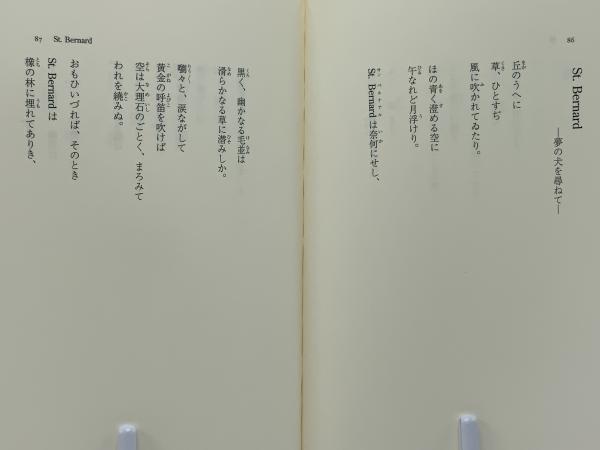 86
St. Bernard
―夢の犬を尋ねて―
丘のうへに
草、ひとすぢ
風に吹かれてゐたり。
ほの青く澄める空に
午なれど月浮けり。
St. Bernardは奈何にせし、
87 St. Bernard
黒く、幽かなる毛並は
滑らかなる草に潜みしか。
嚠々と、涙ながして
黄金の呼笛を吹けば
空は大理石のごとく、まろみて
われを繞みぬ。
おもひいづれば、そのとき
St. Bernardは
橡の林に埋れてありき、